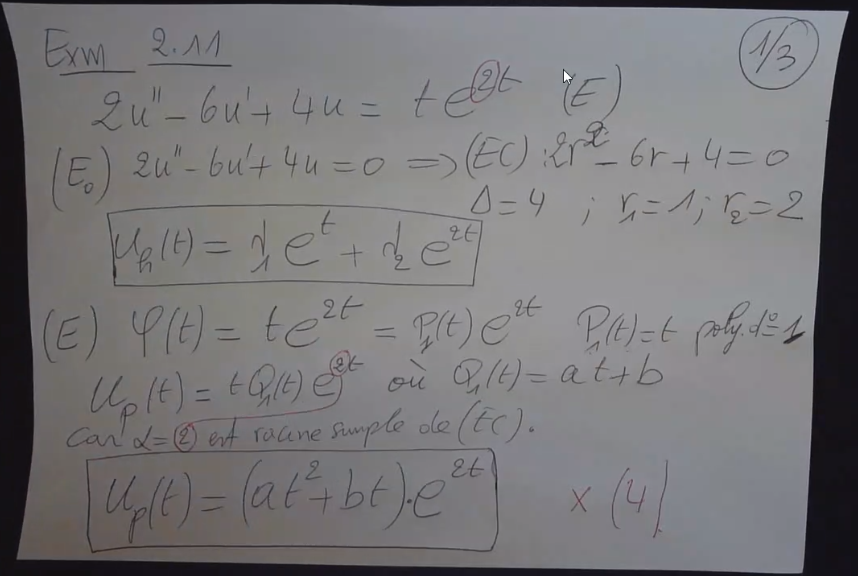 Exm 2.11
1/3
2u'' - 6u' + 4u = t e^{2t} (E)
(E₀) 2u'' - 6u' + 4u = 0 ⟹ (EC) : 2r² - 6r + 4 = 0
Δ = 4 ; r₁ = 1 ; r₂ = 2
u_h(t) = λ₁ e^t + λ₂ e^{2t}
(E) φ(t) = t e^{2t} = P₁(t) e^{2t} P₁(t) = t poly. d° = 1
u_p(t) = t Q₁(t) e^{2t} où Q₁(t) = at + b
car α = 2 est racine simple de (EC).
u_p(t) = (at² + bt) . e^{2t} × (4)